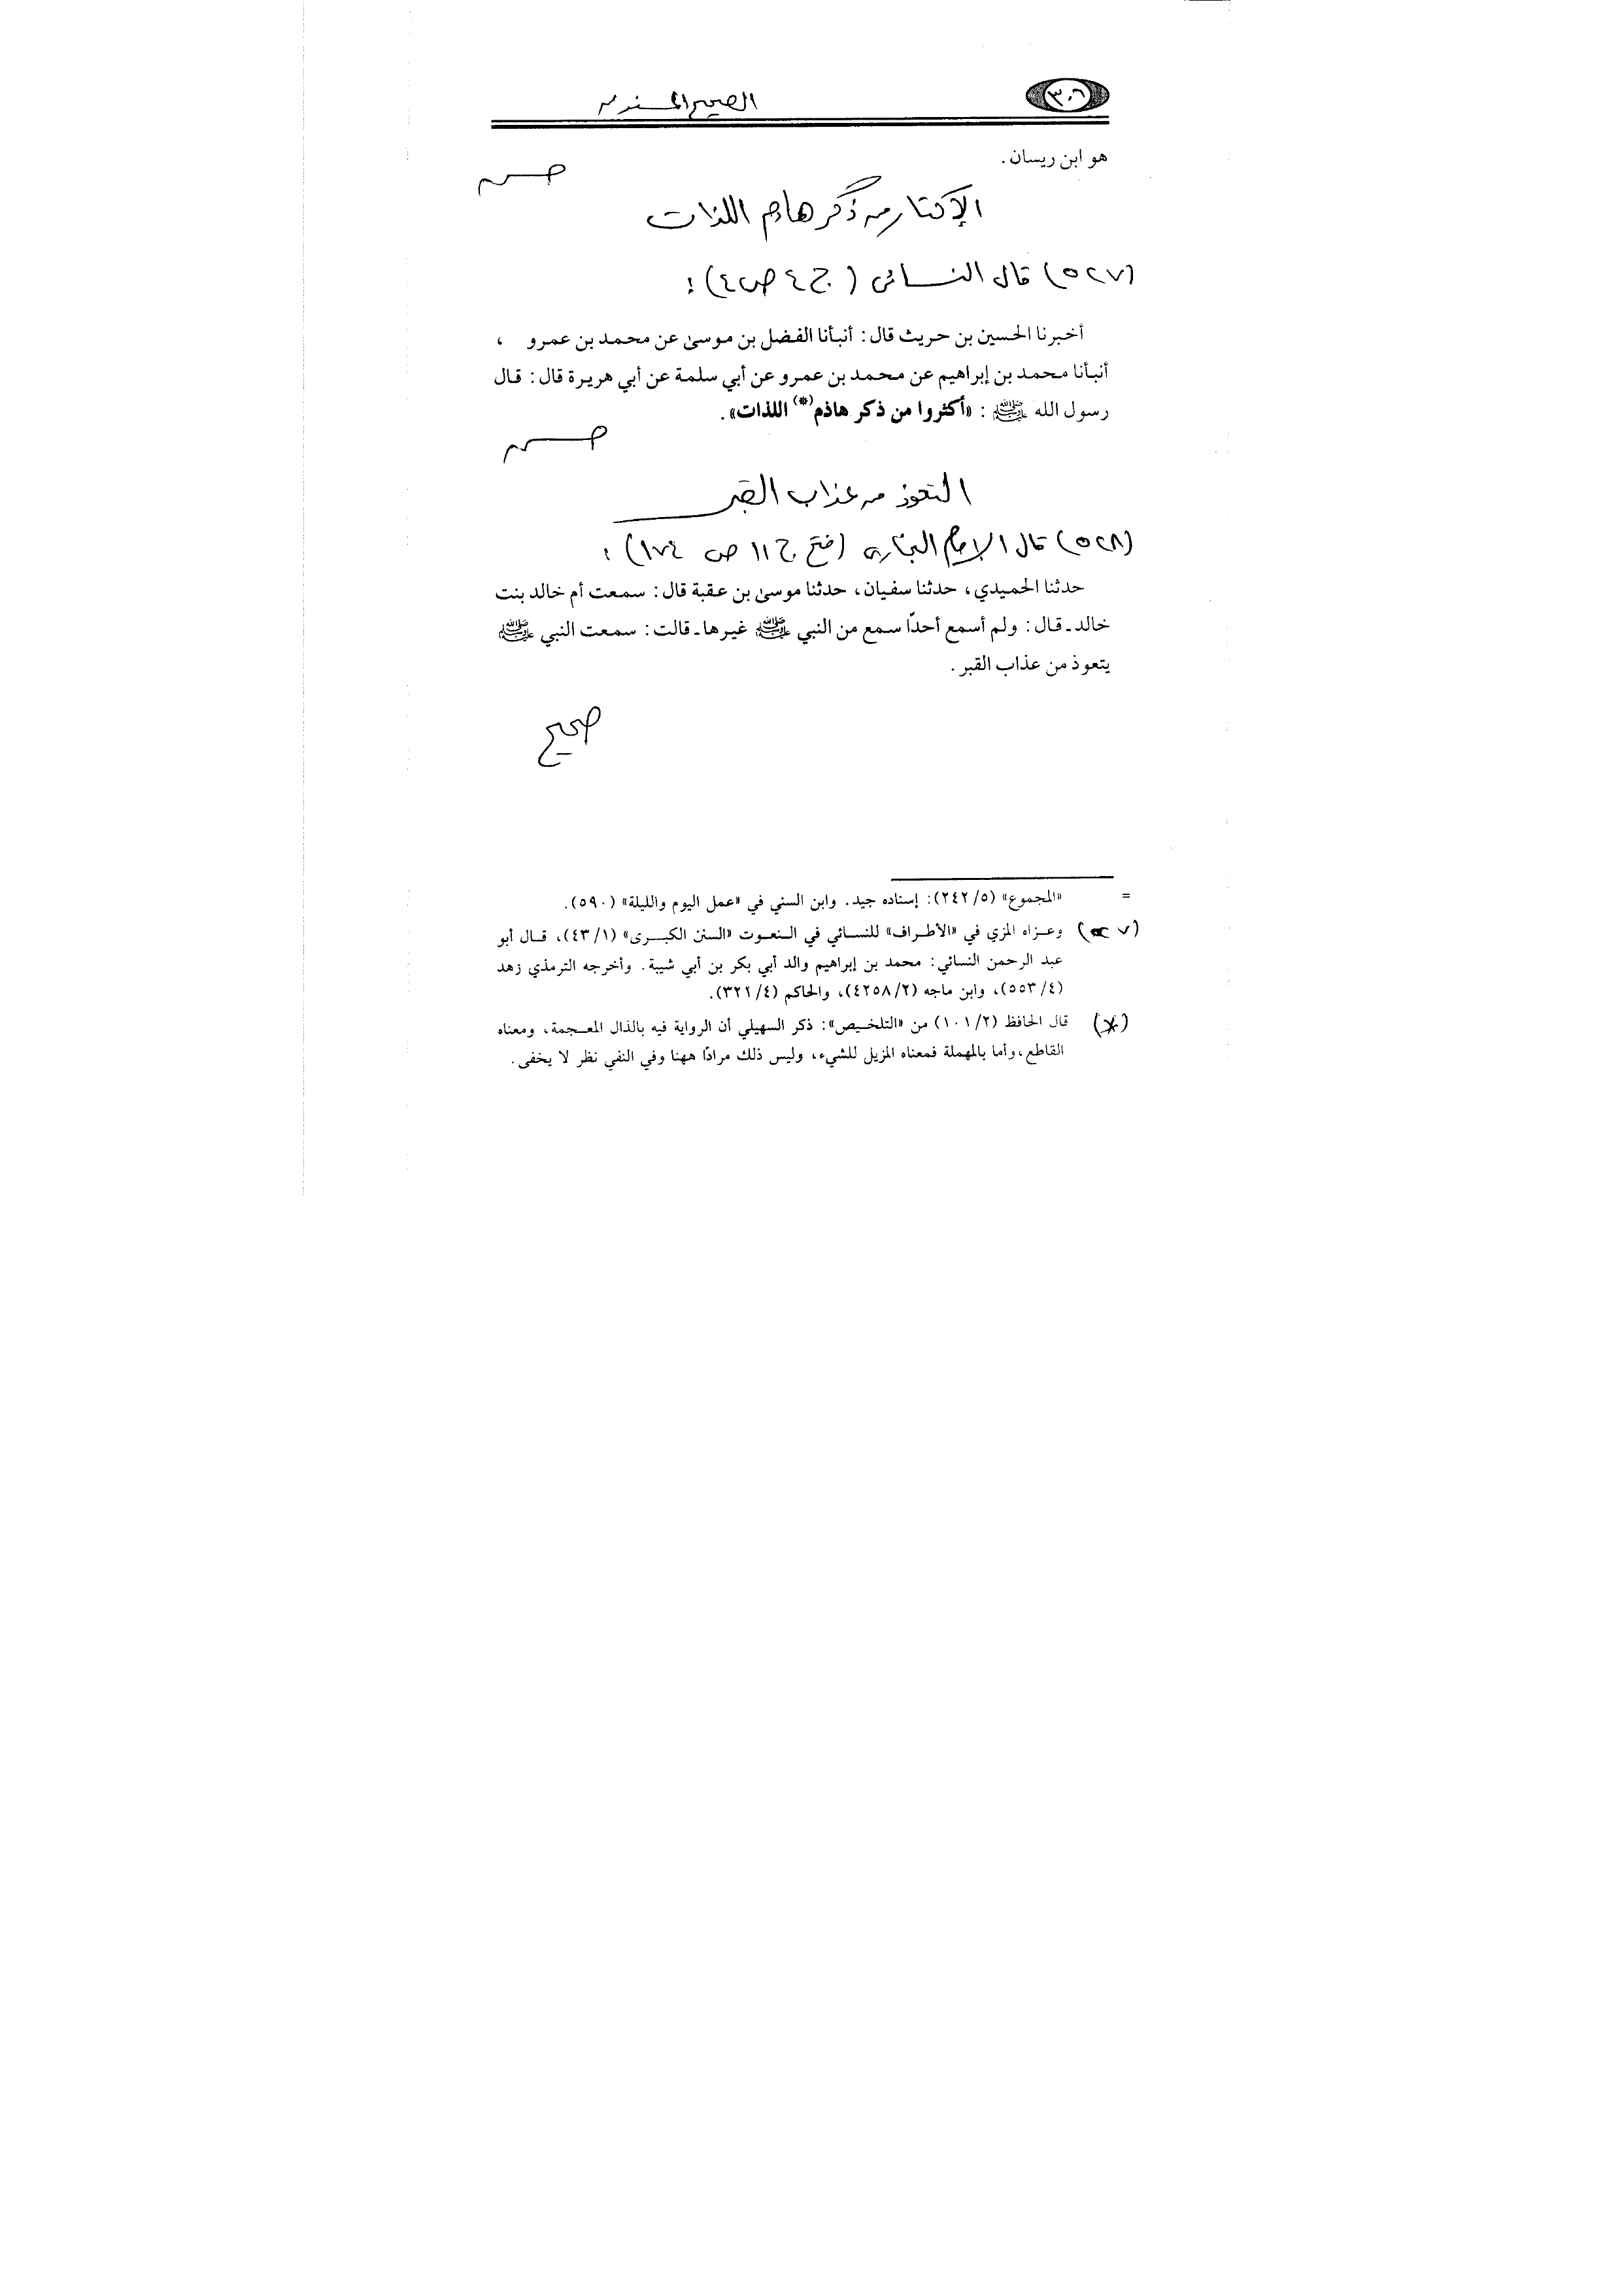 ٣٠٦
الصحيح المسند من
هو ابن ريسان.
حسن
الإكثار من ذكر هاذم اللذات
(٥٢٧) قال النسائي (ج٤ ص٤):
أخبرنا الحسين بن حريث قال: أنبأنا الفضل بن موسىٰ عن محمد بن عمرو ،
أنبأنا محمد بن إبراهيم عن محمد بن عمرو عن أبي سلمة عن أبي هريرة قال: قال
رسول الله ﷺ: «أكثروا من ذكر هاذم(*) اللذات».
حسن
التعوذ من عذاب القبر
(٥٢٨) قال الإمام البخاري (فتح ج١١ ص ١٧٤):
حدثنا الحميدي، حدثنا سفيان، حدثنا موسىٰ بن عقبة قال: سمعت أم خالد بنت
خالد ـ قال: ولم أسمع أحدًا سمع من النبي ﷺ غيرها ـ قالت: سمعت النبي ﷺ
يتعوذ من عذاب القبر.
صحيح
= «المجموع» (٢٤٢/٥): إسناده جيد. وابن السني في «عمل اليوم والليلة» (٥٩٠).
وعزاه المزي في «الأطراف» للنسائي في النعوت «السنن الكبرى» (٤٣/١)، قال أبو
عبد الرحمن النسائي: محمد بن إبراهيم والد أبي بكر بن أبي شيبة. وأخرجه الترمذي زهد
(٥٥٣/٤)، وابن ماجه (٤٢٥٨/٢)، والحاكم (٣٢١/٤).
(*) قال الحافظ (١٠١/٢) من «التلخيص»: ذكر السهيلي أن الرواية فيه بالذال المعجمة، ومعناه
القاطع، وأما بالمهملة فمعناه المزيل للشيء، وليس ذلك مرادًا ههنا وفي النفي نظر لا يخفى.